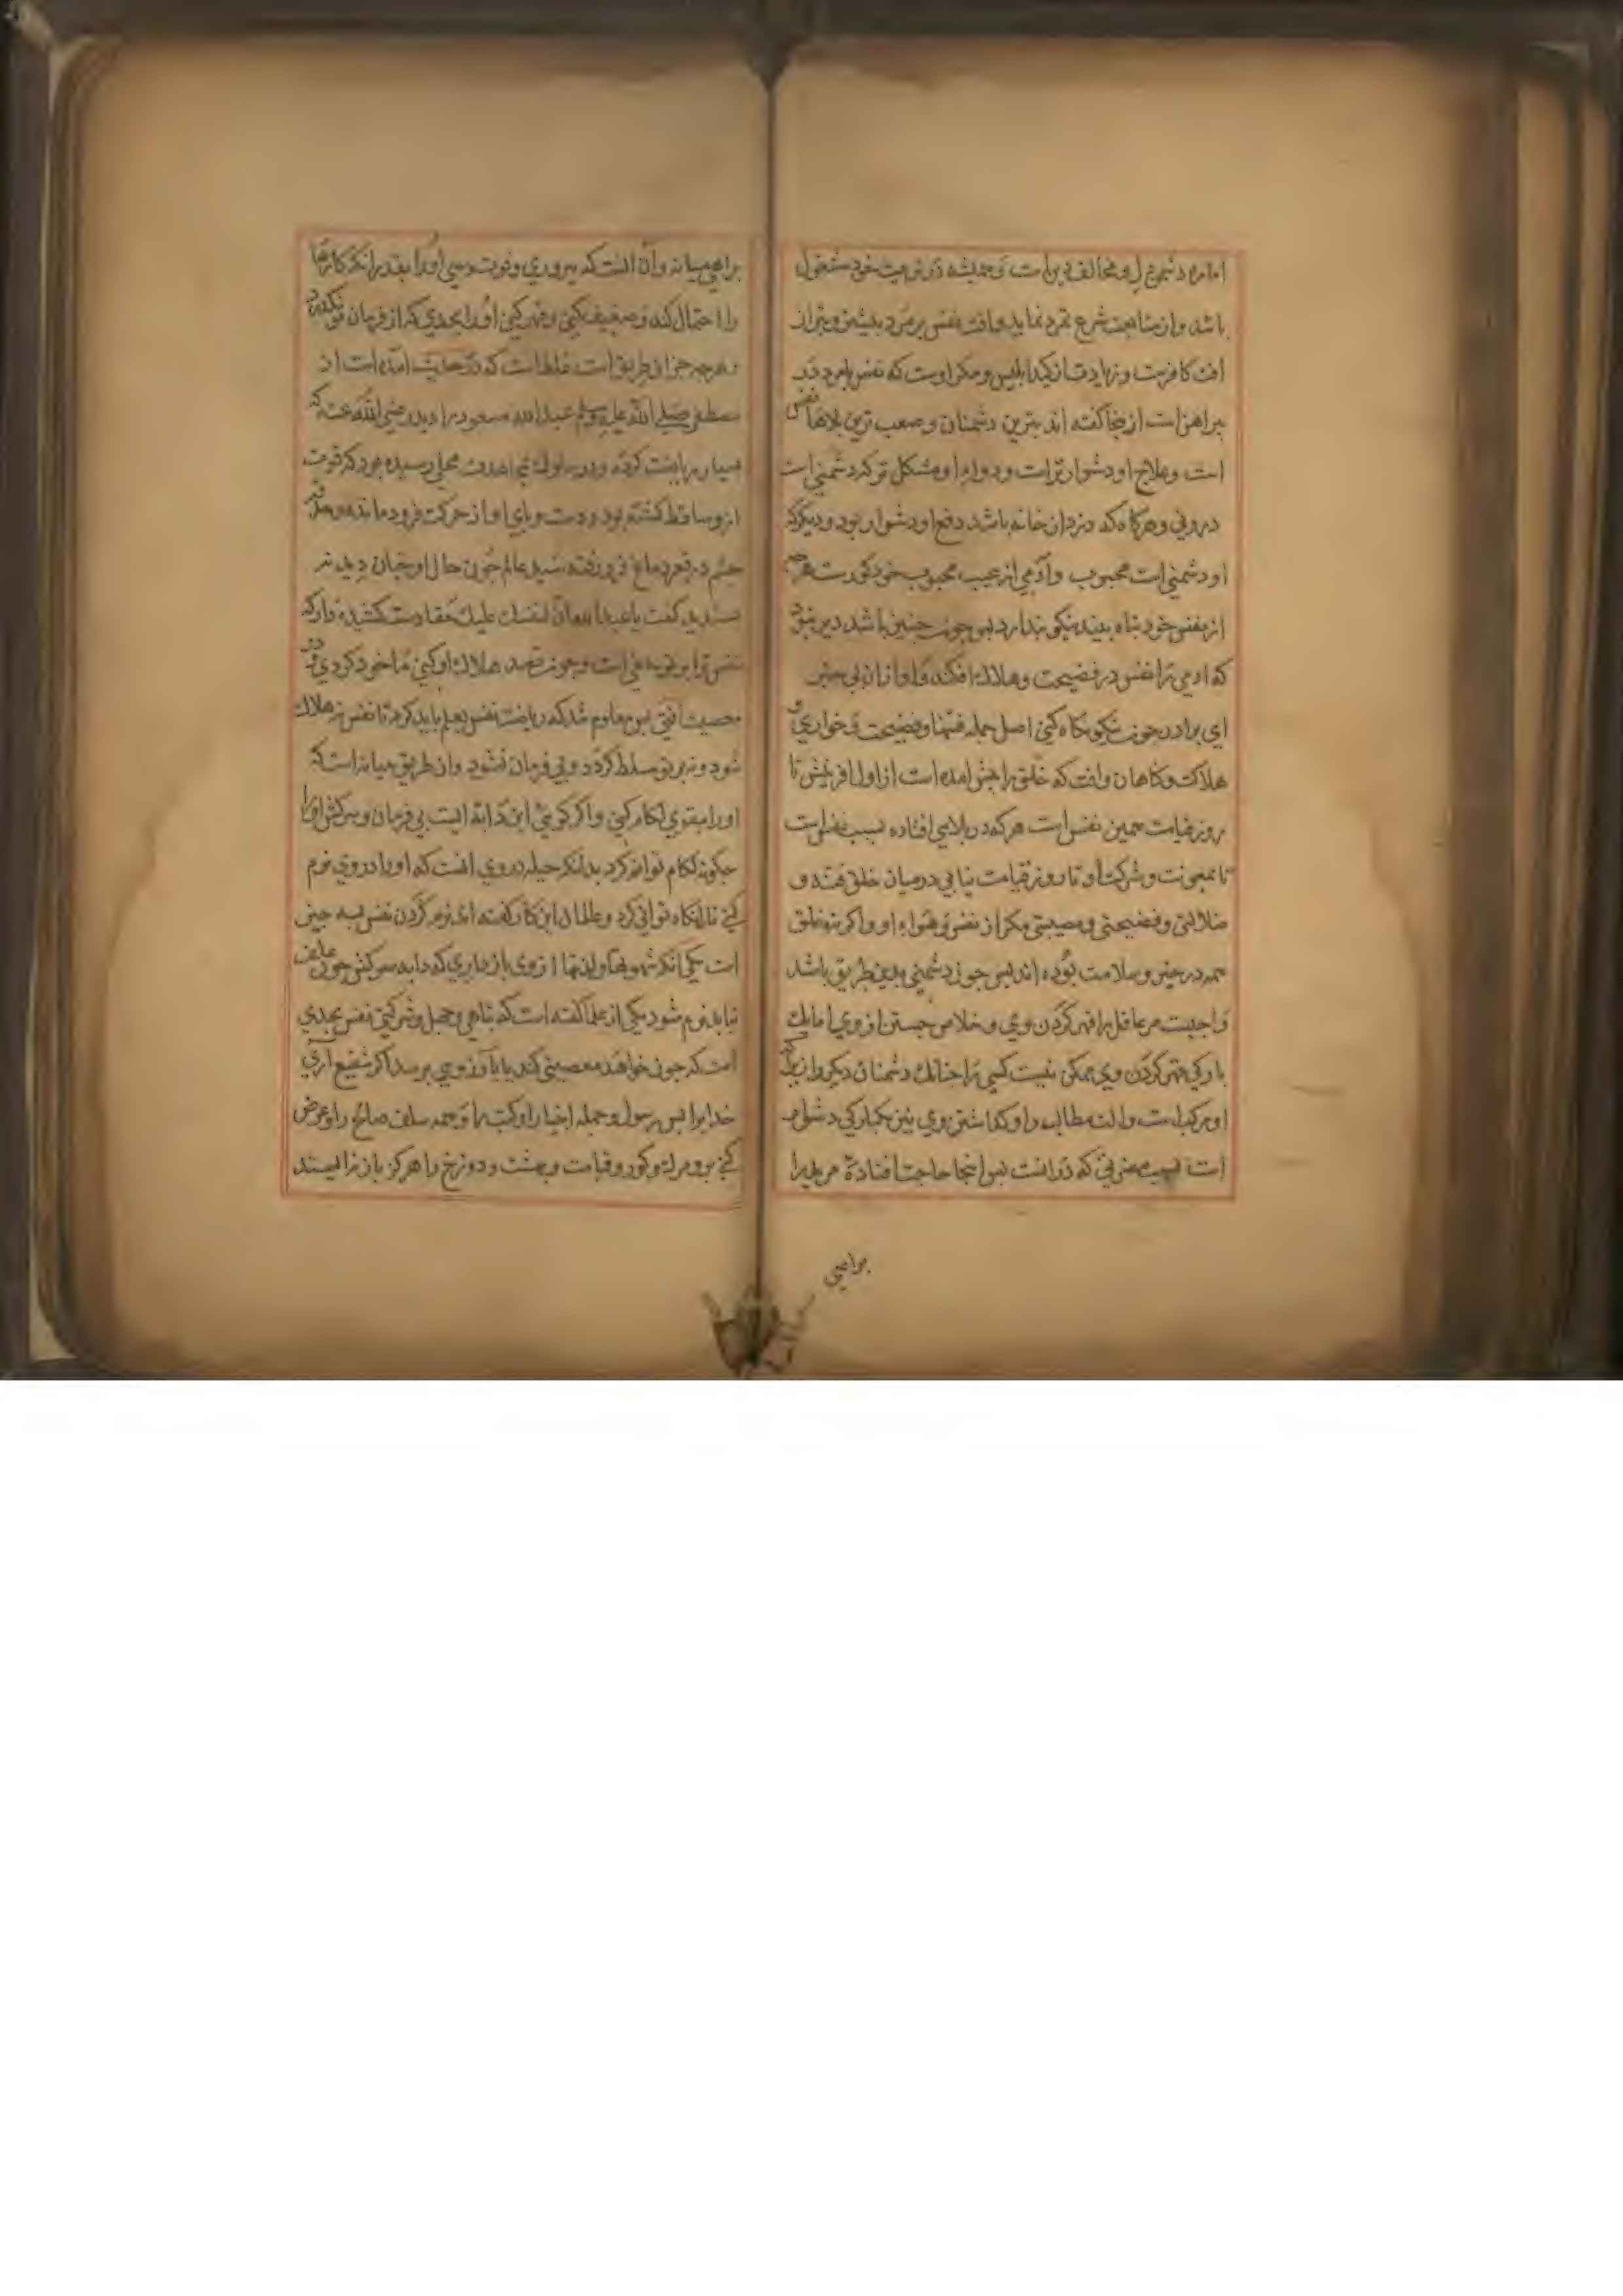 اماره دشمن دل و مخالف دین است و همیشه در تربیت خود مشغول
باشد و از متابعت شرع تمرد نماید و آفت نفس بر مرد بیشتر و بتر از
آفت کافرست و زیادت از کید ابلیس و مکر اوست که نفس با مرد در
پیراهن است از اینجا گفته اند بترین دشمنان و صعب ترین بلاها نفس
است و علاج او دشوارتر است و دواء او مشکل تر که دشمنی است
درونی و هرگاه که دزد از خانه باشد دفع او دشوار بود و دیگر که
او دشمنی است محبوب و آدمی از عیب محبوب خود کورست هرچه
از نفس خود تباه بیند نیکو پندارد پس چون چنین باشد دیر نبود
که آدمی را نفس در فضیحت و هلاک افکند و او از آن بی خبر
ای برادر چون نیکو نگاه کنی اصل جمله فتنها و فضیحت و خواری و
هلاکت و گناهان و آفت که خلق را پیش آمده است از اول آفرینش تا
روز قیامت همین نفس است هر که در بلایی افتاده بسبب نفس است
تا بمعونت و شرکت او تا روز قیامت نیابی در میان خلق فتنه و
ضلالتی و فضیحتی و مصیبتی مگر از نفس و هواء او و اگر نه خلق
همه در خیر و سلامت بوده اند پس چون دشمنی بدین طریق باشد
واجبست مر عاقل را قهر کردن وی و خلاص جستن از وی اما بیک
بارگی قهر کردن وی ممکن نیست کسی را چنانک دشمنان دیگر را زیرا که
او مرکب است و آلت مطالب را و گذاشتن وی نیز بیکبارگی دشوار
است بسبب مضرتی که در آنست پس اینجا حاجت افتاده مریدرا
براهی
براهی میانه و آن آنست که پروری و قوت دهی او را بقدر آنک کارها
را احتمال کند و ضعیف کنی و قهر کنی او را بحدی که از فرمان تو نگذرد
و هرچه جز این طریق است غلط است که در حدیث آمده است از
مصطفی صلی الله علیه وسلم عبدالله مسعود را دید رضی الله عنه که
بسیار ریاضت کرده و در سلوک مجاهدت بمحلی رسیده بود که قوت
ازو ساقط گشته بود و دست و پای او از حرکت فرو مانده و هر دو
چشم در قعر دماغ فرو رفته سید عالم چون حال او چنان دید نه
پسندید گفت یا عبدالله ان لنفسک علیک حقا دست کشیده دار که
نفس ترا بر تو حقی است و چون قصد هلاک او کنی ماخوذ گردی و در
معصیت افتی پس معلوم شد که ریاضت نفس بعلم باید کرد تا نفس نه هلاک
شود و نه بر تو مسلط گردد و بی فرمان نشود و آن طریق میانه است که
او را بتقوی لگام کنی و اگر گویی این دابه ایست بی فرمان و سرکش او را
چگونه لگام توانم کرد بدانک حیله در وی آنست که او را در وی نرم
کنی تا لگام توانی کرد و عالمان این کار گفته اند نرم کردن نفس بسه چیز
است یکی آنک شهوتها و لذتها از وی باز داری که دابه سرکش چون علف
نیابد نرم شود یکی از علما گفته است که تباهی و جهل و شر کیی نفس بحدی
است که چون خواهد معصیتی کند یا بآرزویی برسد اگر شفیع آری
خدایرا پس رسول و جمله اخیار او کتب را و همه سلف صالح را و عرض
کنی برو مرگ و گور و قیامت و بهشت و دوزخ را هرگز باز نه ایستد